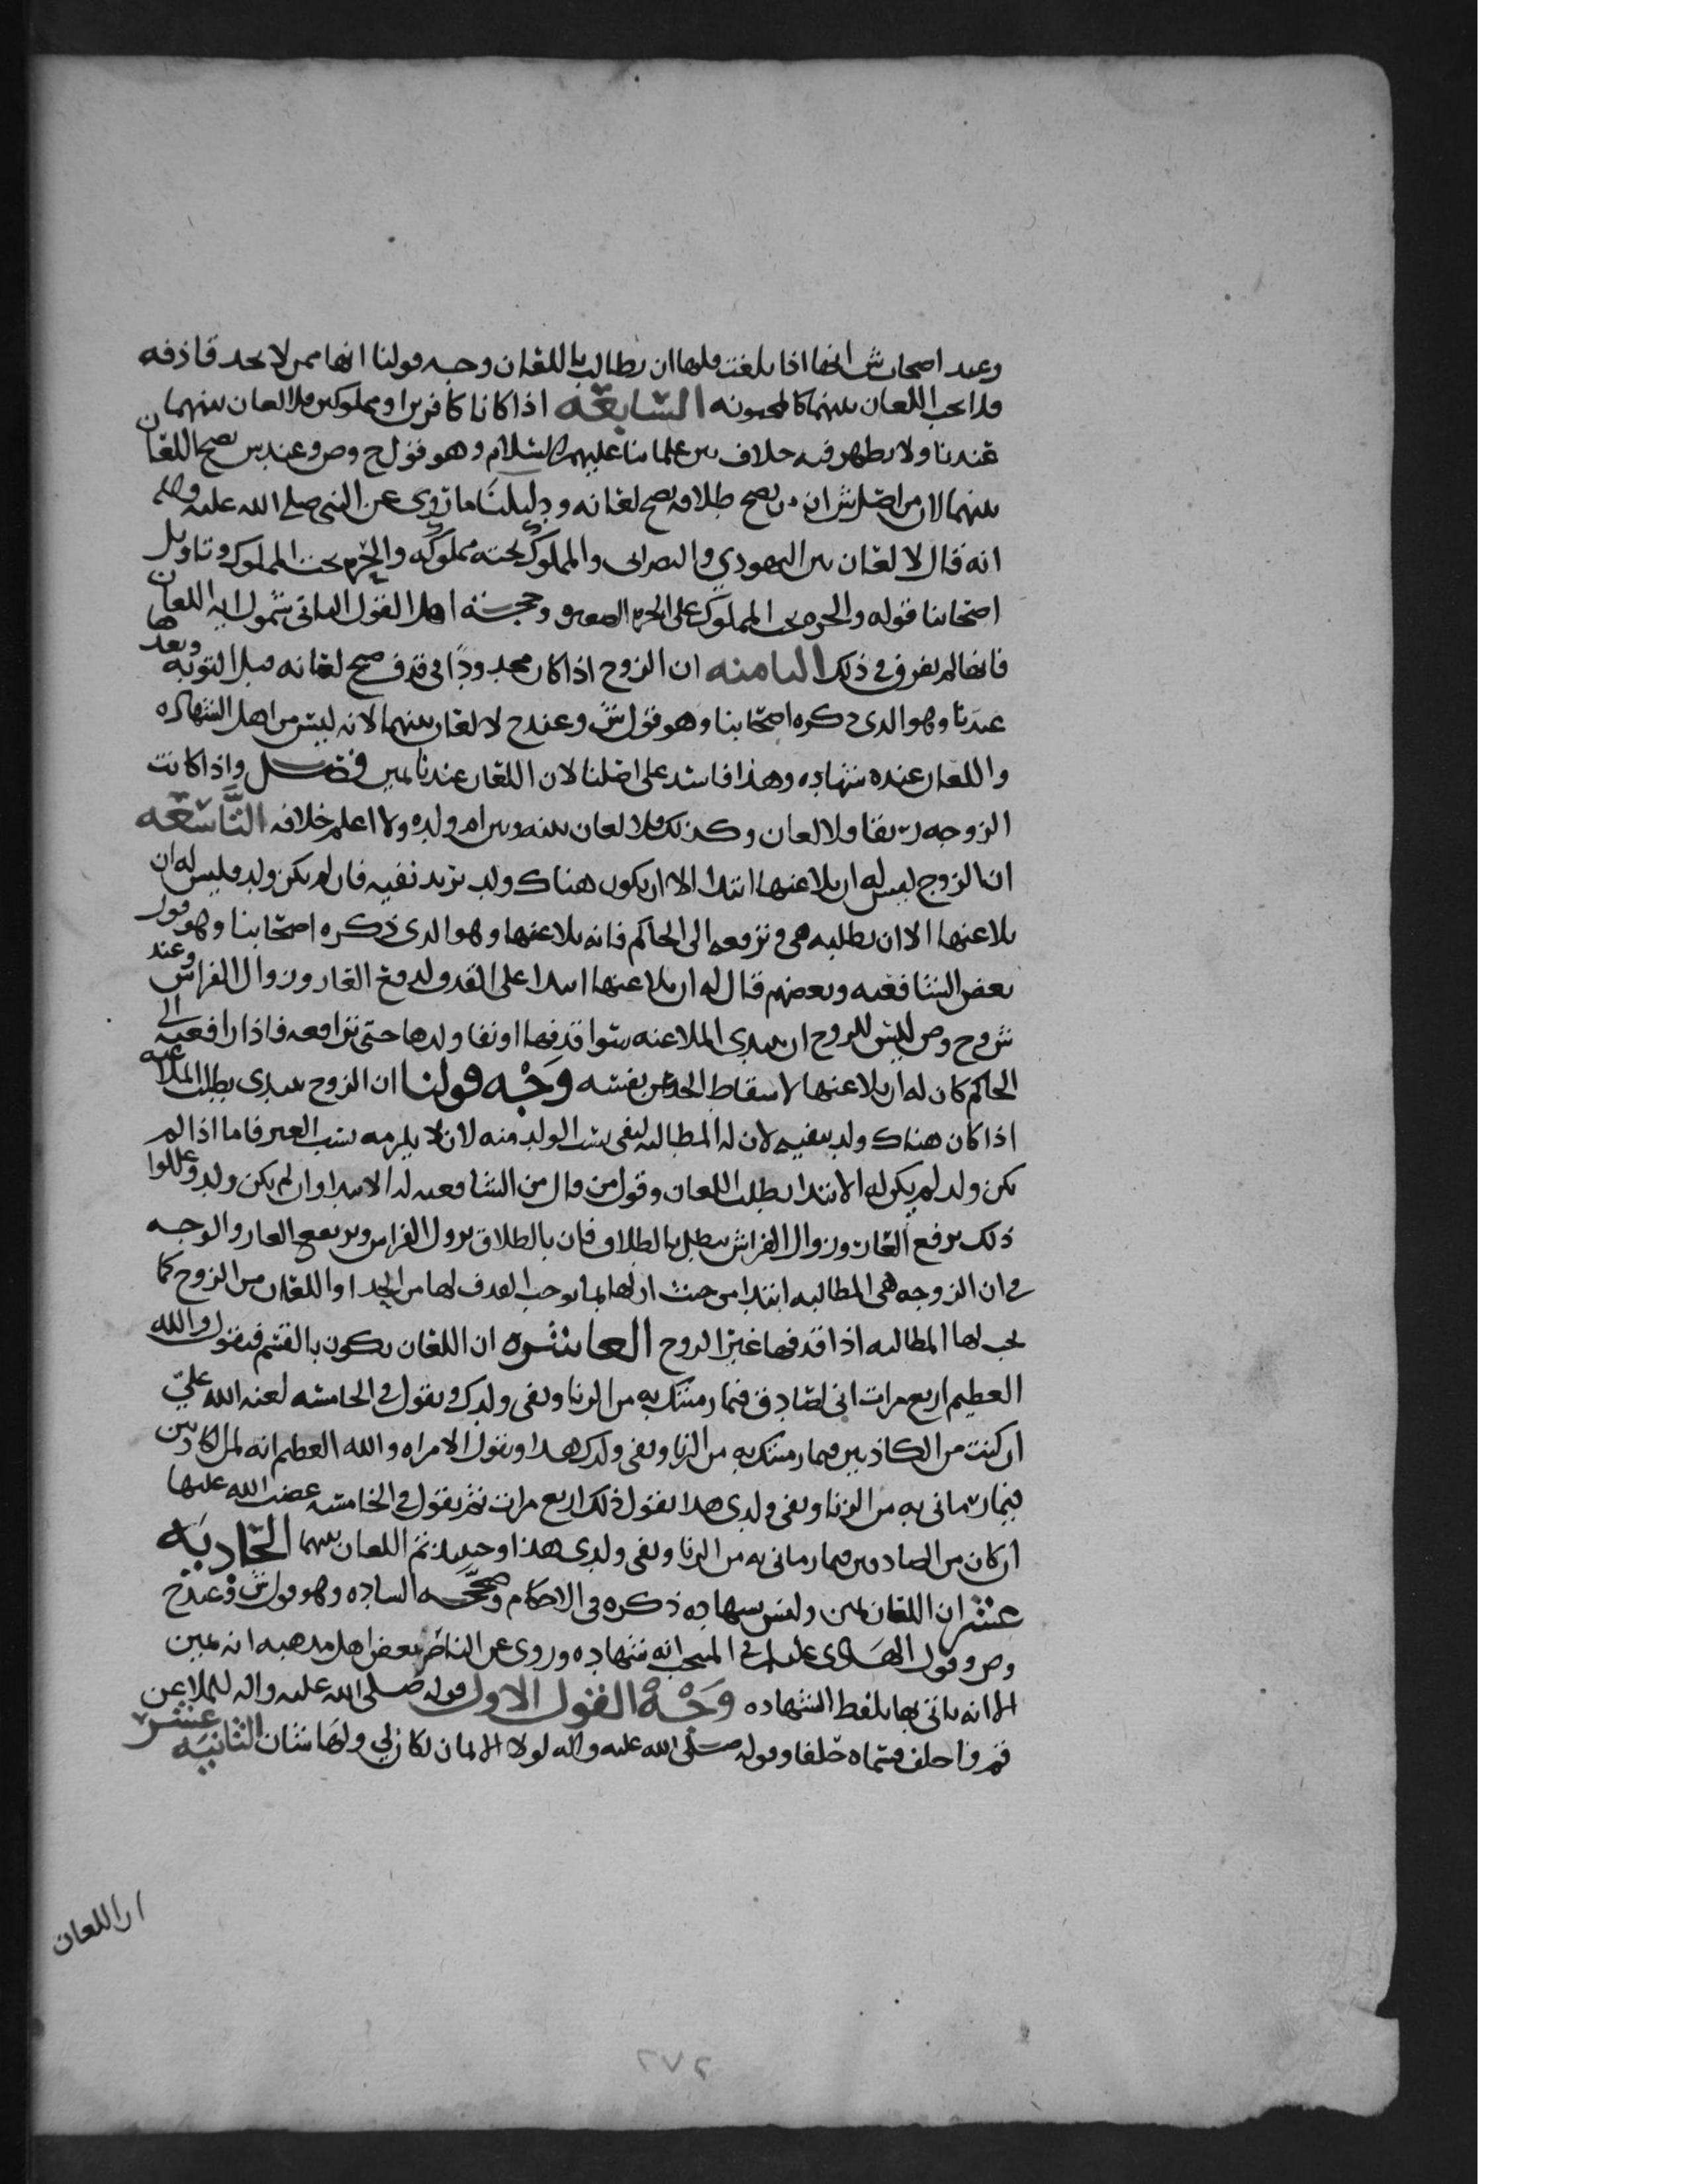 وعند اصحاب ش انها اذا بلغت فلها ان تطالب باللعان وجه قولنا انها ممن لا يحد قاذفه
فلا يجب اللعان بينهما كالمجنونه السابعه اذا كانا كافرين او مملوكين فلا لعان بينهما
عندنا ولا يظهر فيه خلاف بين علمائنا عليهم السلام وهو قول ح وص وعند ش يصح اللعان
بينهما لان من اصل ش ان من يصح طلاقه يصح لعانه ودليلنا ما روي عن النبي صلى الله عليه وسلم
انه قال لا لعان بين اليهودي والنصراني والمملوك تحته مملوكه والحره تحت المملوك وتاويل
اصحابنا قوله والحره تحت المملوك على الحره الصغيره وحجة اهل القول الثاني شمول ايه اللعان
فانها لم تفرق في ذلك الثامنه ان الزوج اذا كان محدودا في قذف صح لعانه قبل التوبه وبعدها
عندنا وهو الذي ذكره اصحابنا وهو قول ش وعند ح لا لعان بينهما لانه ليس من اهل الشهاده
واللعان عنده شهاده وهذا فاسد على اصلنا لان اللعان عندنا يمين فصل واذا كانت
الزوجه رتقا فلا لعان وكذلك فلا لعان بينه وبين ام ولده ولا اعلم خلافه التاسعه
ان الزوج ليس له ان يلاعنها ابتدا الا ان يكون هناك ولد يريد نفيه فان لم يكن ولد فليس له ان
يلاعنها الا ان تطلبه هي وترفعه الى الحاكم فانه يلاعنها وهو الذي ذكره اصحابنا وهو قول
بعض الشافعيه وبعضهم قال له ان يلاعنها ابتدا على القذف لدفع العار وزوال الفراش وعند
ش وح وص ليس للزوج ان يبتدي الملاعنه سوا قذفها او نفا ولدها حتى ترافعه فاذا رافعته الى
الحاكم كان له ان يلاعنها لاسقاط الحد عن نفسه وجه قولنا ان الزوج يبتدي بطلب الملاعنه
اذا كان هناك ولد ينفيه لان له المطالبه لنفي نسب الولد منه لان لا يلزمه نسب الغير فاما اذا لم
يكن ولد لم يكن له الابتدا بطلب اللعان وقول من قال من الشافعيه له الابتدا وان لم يكن ولد وعللوا
ذلك برفع العار وزوال الفراش يبطل بالطلاق فان بالطلاق يزول الفراش ويرتفع العار والوجه
في ان الزوجه هي المطالبه ابتدا من حيث ان لها بما يوجب القذف لها من الحد او اللعان من الزوج كما
يجب لها المطالبه اذا قذفها غير الزوج العاشره ان اللعان يكون بالقسم فيقول والله
العظيم اربع مرات اني لصادق فيما رميتك به من الزنا ونفي ولدك ويقول في الخامسه لعنة الله علي
ان كنت من الكاذبين فيما رميتك به من الزنا ونفي ولدك هذا وتقول الامراه والله العظيم انه لمن الكاذبين
فيما رماني به من الزنا ونفي ولدي هذا تقول ذلك اربع مرات ثم تقول في الخامسه غضب الله عليها
ان كان من الصادقين فيما رماني به من الزنا ونفي ولدي هذا وحينئذ تم اللعان بينهما الحاديه
عشر ان اللعان يمين وليس بشهاده ذكره في الاحكام وصححه الساده وهو قول ش وعند ح
وص وقول الهادي عليلم في المنتخب انه شهاده وروي عن الناصر بعض اهل مذهبه انه يمين
الا انه ياتي بها بلفظ الشهاده وجه القول الاول قوله صلى الله عليه واله للملاعن
قم فاحلف فسماه حلفا وقوله صلى الله عليه واله لولا الايمان لكان لي ولها شان الثانيه عشر
ان اللعان
٢٧٢